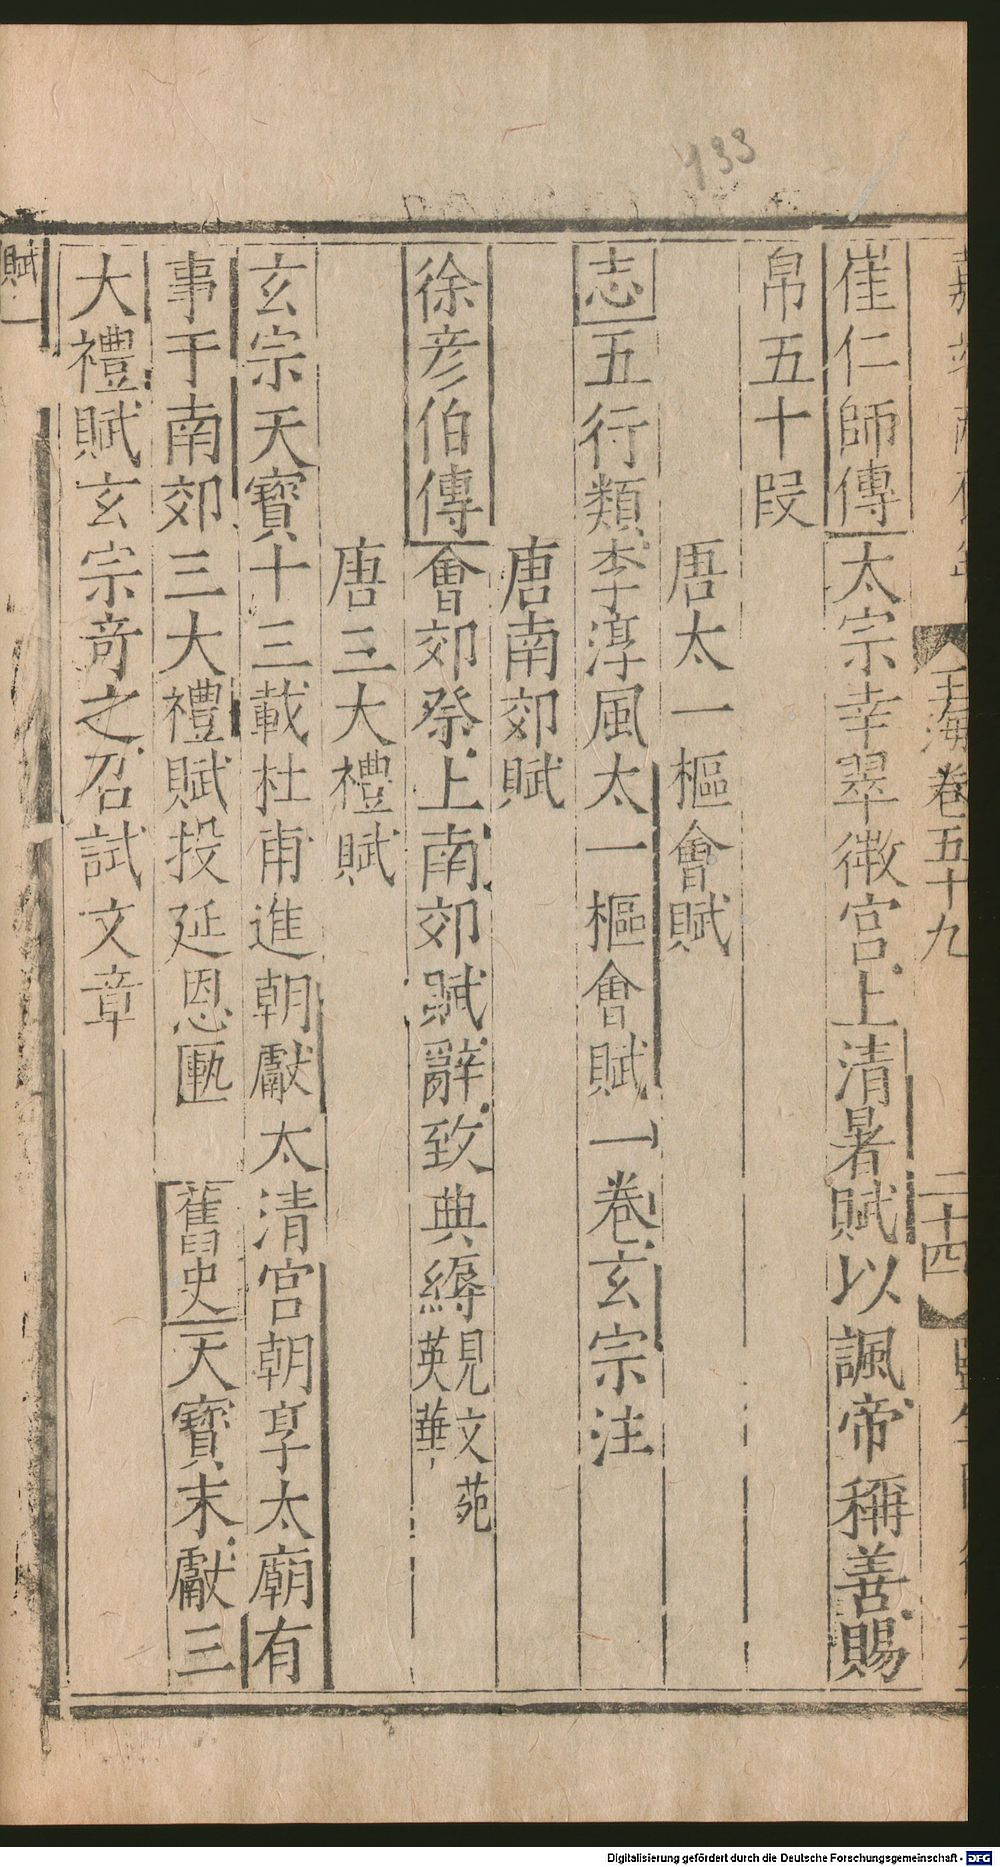 玉海卷五十九
二十四
崔仁師傳太宗幸翠微宮上清暑賦以諷帝稱善賜
帛五十段
唐太一樞會賦
志五行類李淳風太一樞會賦一卷玄宗注
唐南郊賦
徐彦伯傳會郊祭上南郊賦辭致典縟見文苑英華
唐三大禮賦
玄宗天寶十三載杜甫進朝獻太清宮朝享太廟有
事于南郊三大禮賦投延恩匭 舊史天寶末獻三
大禮賦玄宗奇之召試文章
賦
133
Digitalisierung gefördert durch die Deutsche Forschungsgemeinschaft - DFG